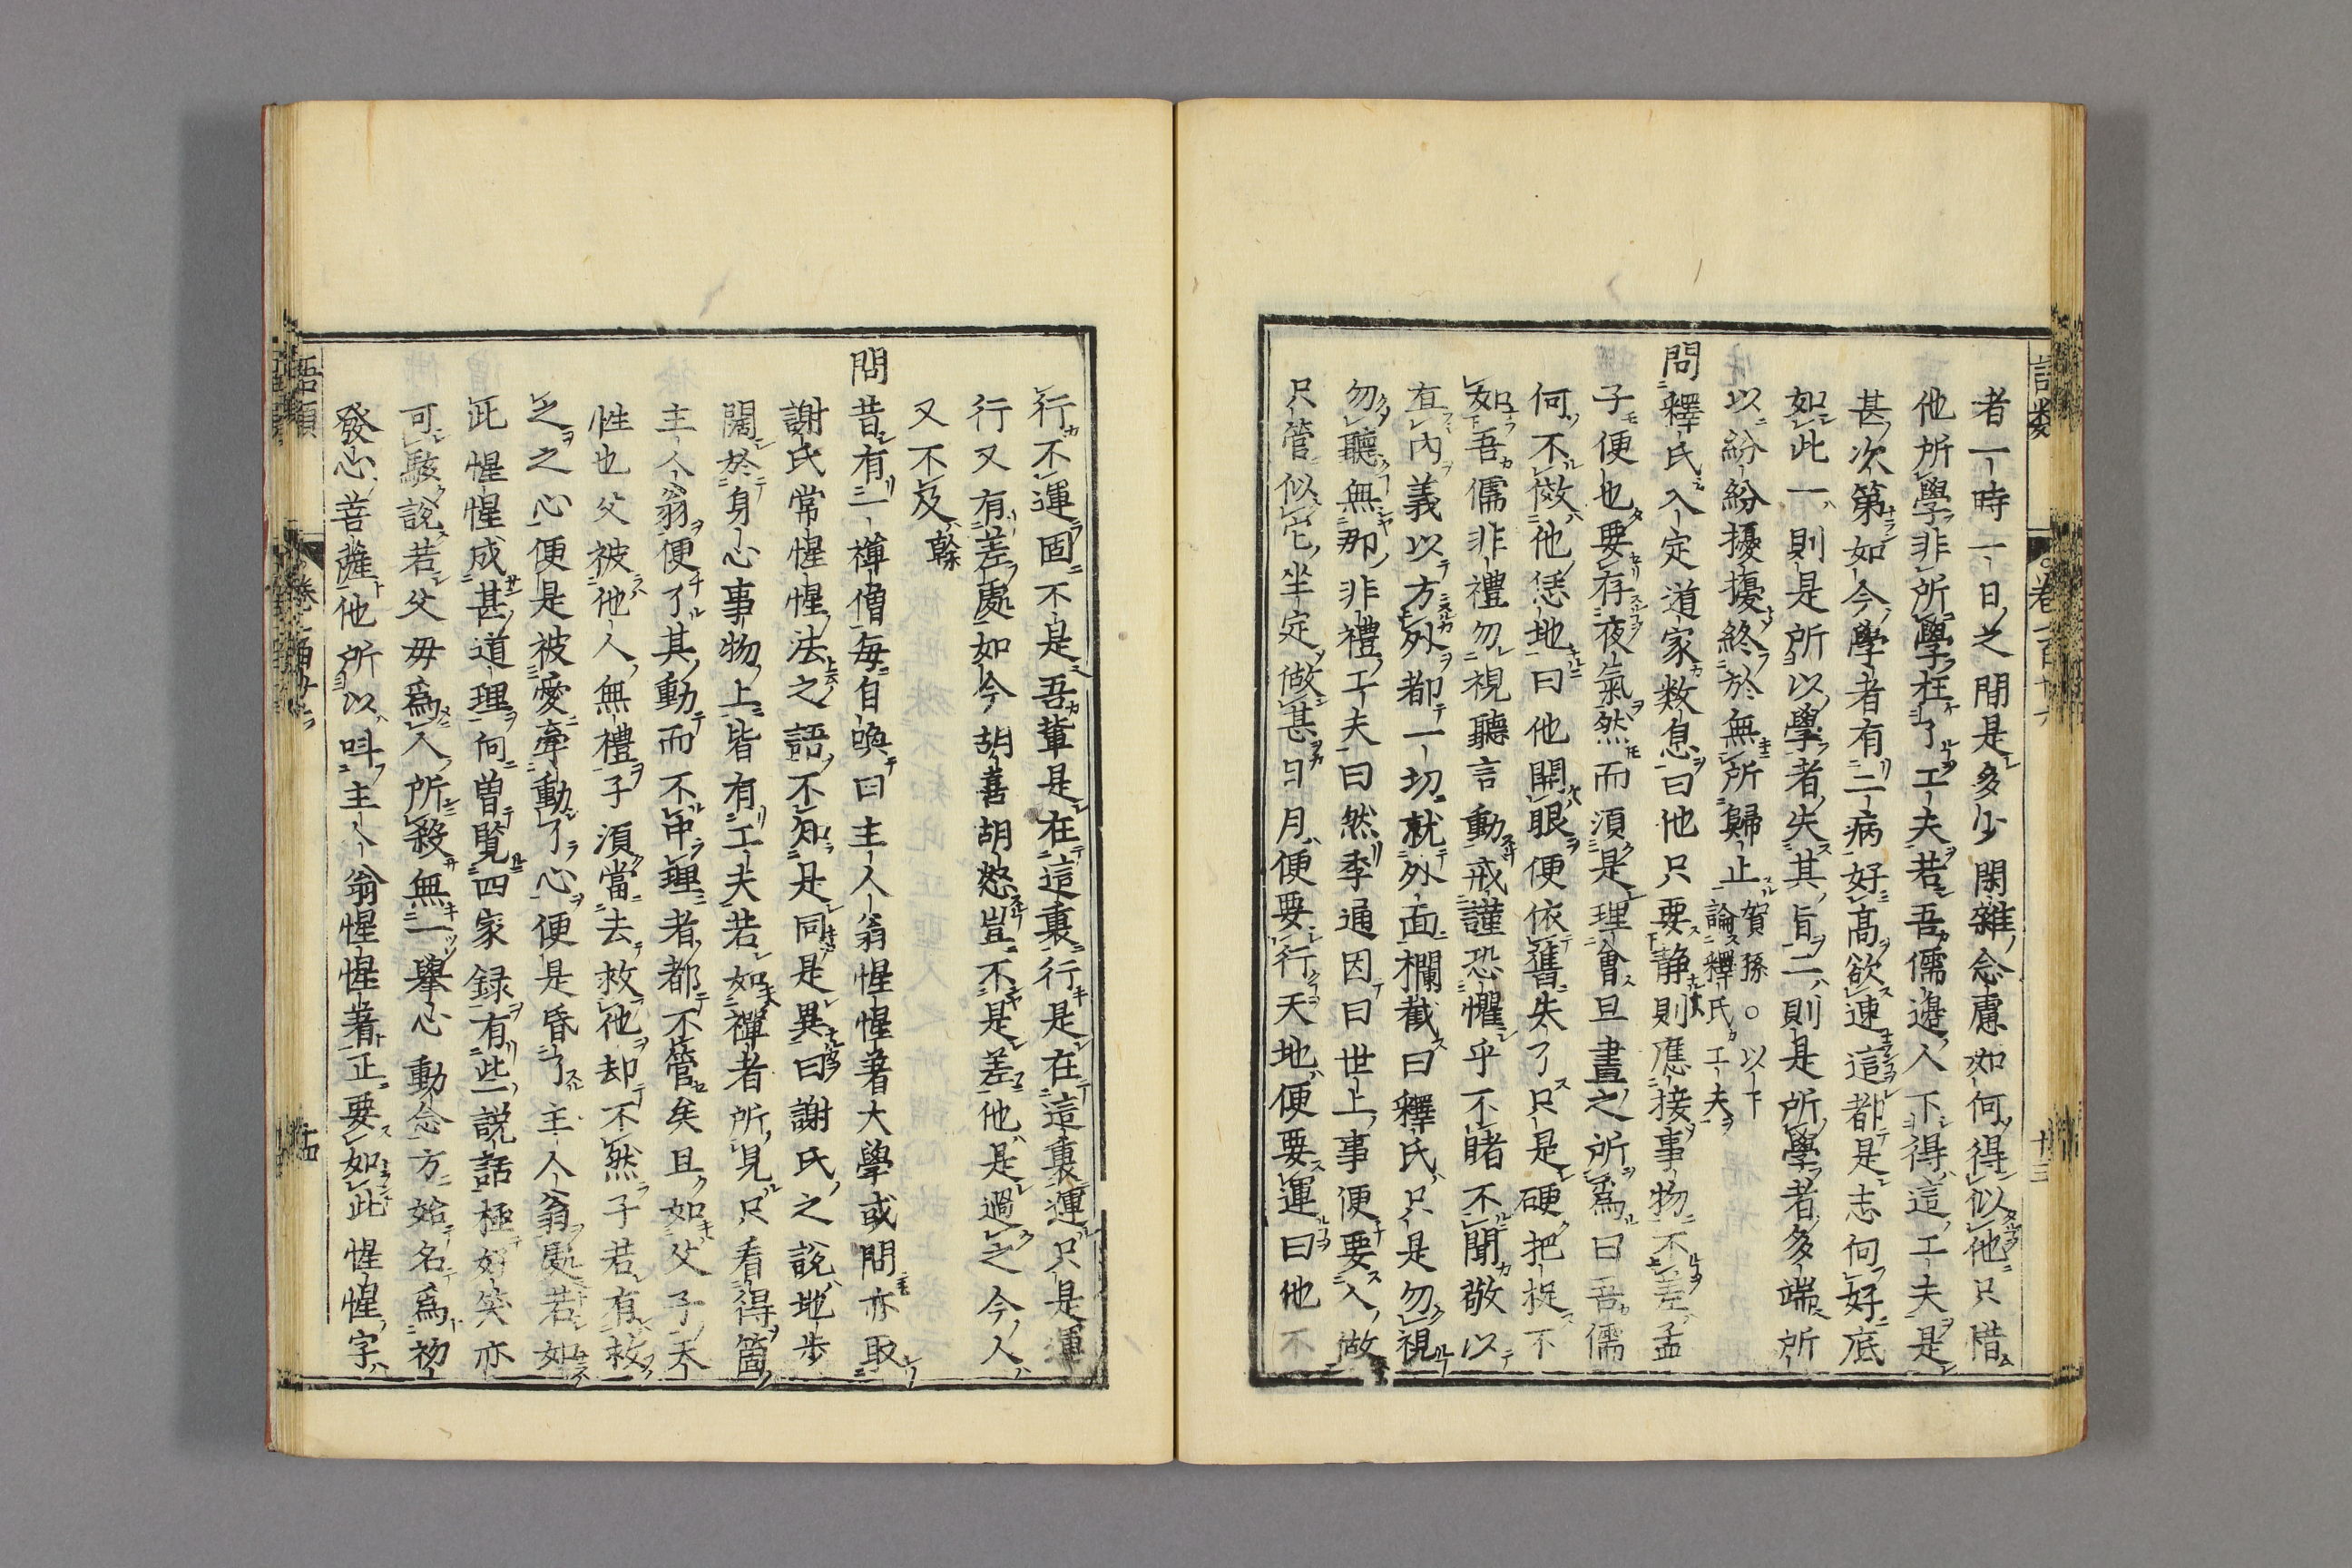 語類 卷一百廿六 十三
者一時一日之間是多少閑雜念慮如何得似他只惜
他所學非所學枉了工夫若吾儒邊人下得這工夫是
甚次第如今學者有二病好高欲速這都是志向好底
如此一則是所以學者失其旨二則是所學者多端所
以紛紛擾擾終於無所歸止 賀孫○以下論釋氏工夫
問釋氏入定道家數息曰他只要靜則應接事物不差孟
子便也要存夜氣然而須是理會旦晝之所爲曰吾儒
何不傚他恁地曰他開眼便依舊失了只是硬把捉不
如吾儒非禮勿視聽言動戒謹恐懼乎不睹不聞敬以
直內義以方外都一切就外面欄截曰釋氏只是勿視
勿聽無那非禮工夫曰然季通因曰世上事便要人做
只管似它坐定做甚日月便要行天地便要運曰他不
行不運固不是吾輩是在這裏行是在這裏運只是運
行又有差處如今胡喜胡怒豈不是差他是過之今人
又不及 榦
問昔有一禪僧每自喚曰主人翁惺惺著大學或問亦取
謝氏常惺惺法之語不知是同是異曰謝氏之說地步
闊於身心事物上皆有工夫若如禪者所見只看得箇
主人翁便了其動而不中理者都不管矣且如父子天
性也父被他人無禮子須當去救他却不然子若有救
之之心便是被愛牽動了心便是昏了主人翁處若如
此惺惺成甚道理向曾覽四家録有些說話極好笑亦
可駭說若父母爲人所殺無一舉心動念方始名爲初
發心菩薩他所以呌主人翁惺惺著正要如此惺惺字
語類 卷一百廿六 十四